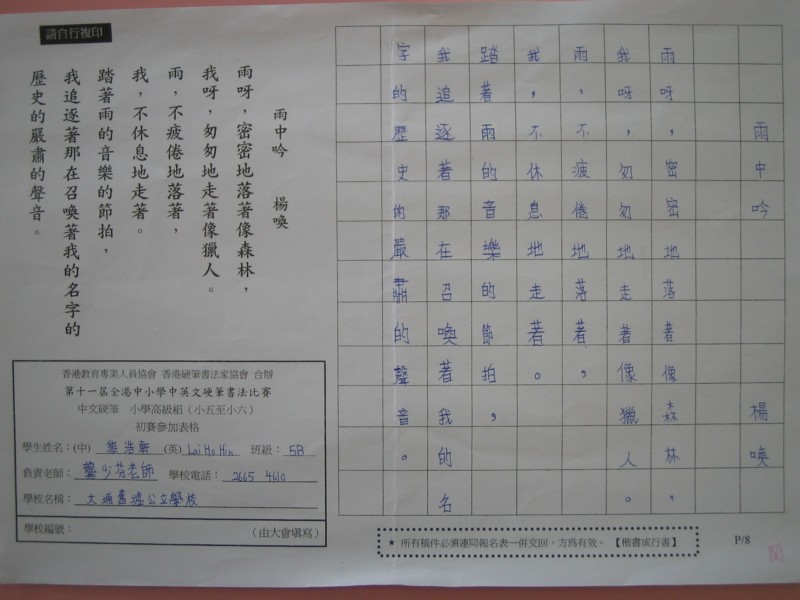 請自行複印
雨中吟　楊喚
雨呀，密密地落著像森林，
我呀，匆匆地走著像獵人。
雨，不疲倦地落著，
我，不休息地走著。
踏著雨的音樂的節拍，
我追逐著那在召喚著我的名字的
歷史的嚴肅的聲音。
香港教育專業人員協會 香港硬筆書法家協會 合辦
第十一屆全港中小學中英文硬筆書法比賽
中文硬筆　小學高級組（小五至小六）
初賽參加表格
學生姓名：(中) 黎浩軒 (英) Lai Ho Hin 班級： 5B
負責老師： 少芬老師 學校電話： 2665 4610
學校名稱： 大埔舊墟公立學校
學校編號： （由大會填寫）
雨中吟　楊喚
雨呀，密密地落著像森林，
我呀，匆匆地走著像獵人。
雨，不疲倦地落著，
我，不休息地走著。
踏著雨的音樂的節拍，
我追逐著那在召喚著我的名
字的歷史的嚴肅的聲音。
★ 所有稿件必須連同報名表一併交回，方為有效。【楷書或行書】
P/8